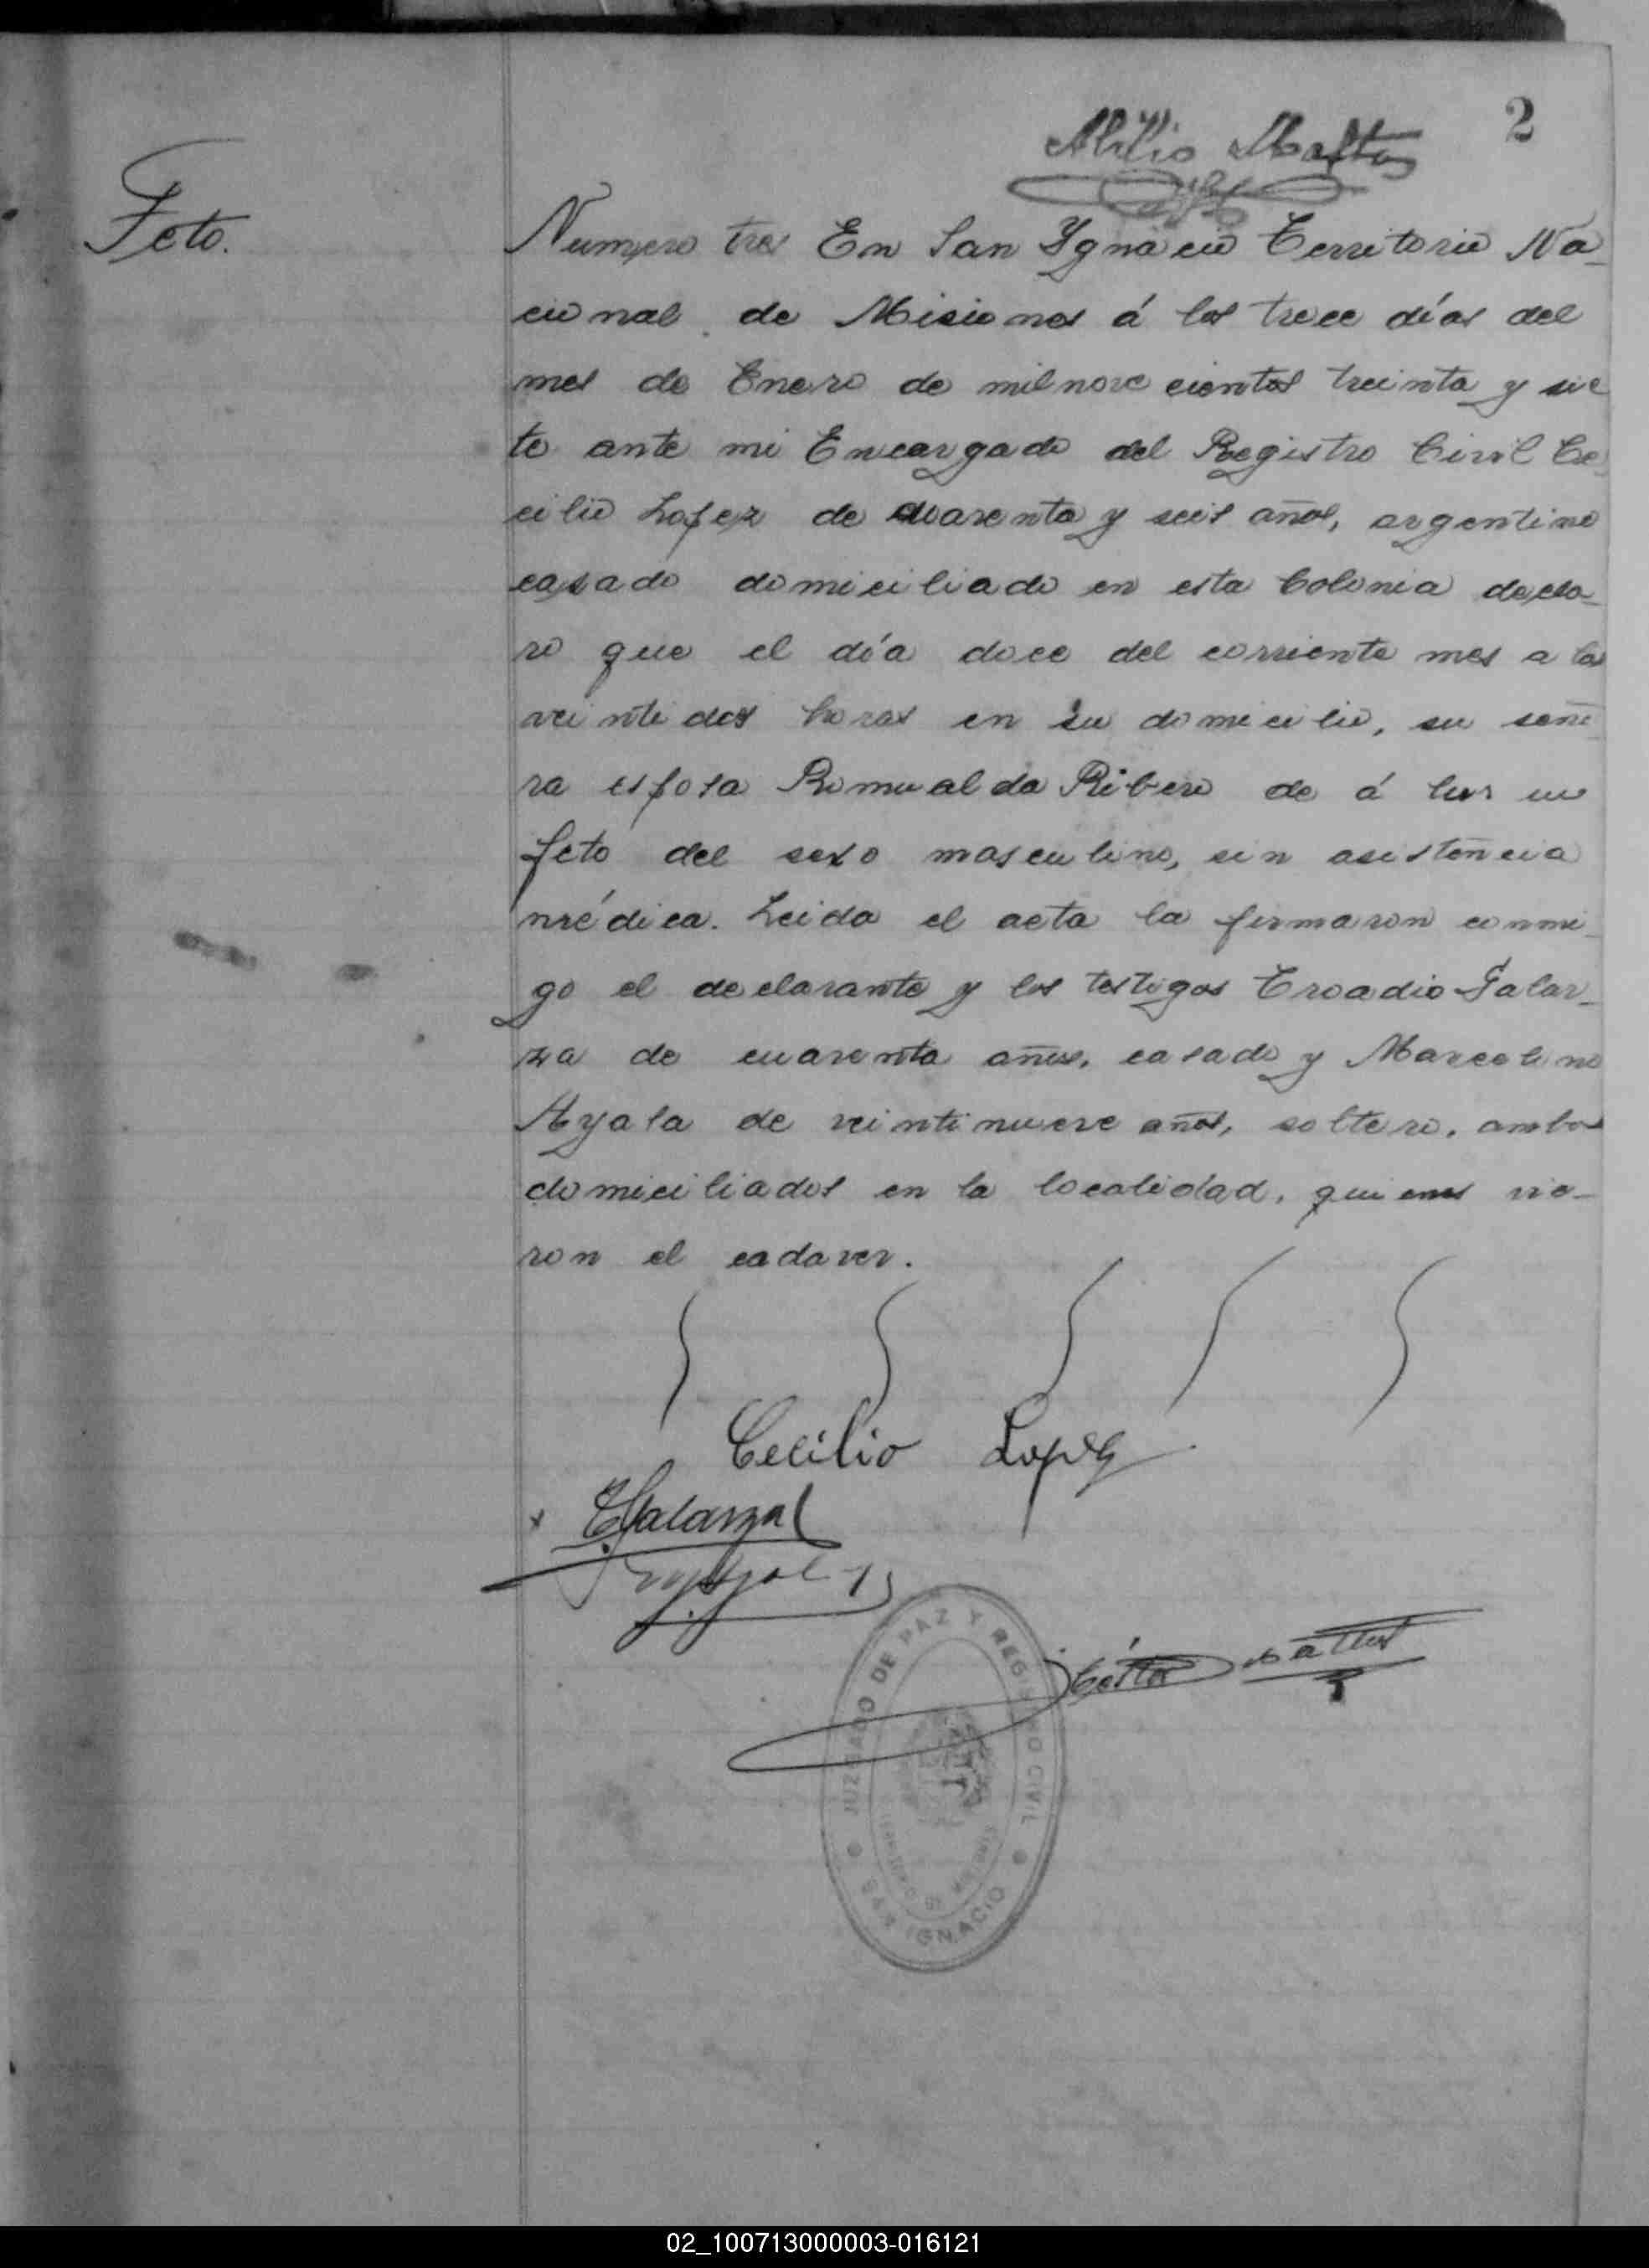 2
Feto.
Numero tres En San Ygnacio Territorio Na-
cional de Misiones á los trece días del
mes de Enero de mil nove cientos treinta y sie
te ante mi Encargado del Registro Civil Ce
cilio Lopez de cuarenta y seis años, argentino
casado domiciliado en esta Colonia decla-
ro que el día doce del corriente mes a las
veinti dos horas en su domicilio, su seño
ra esposa Romualda Ribero de á luz un
feto del sexo masculino, sin asistencia
médica. Leida el acta la firmaron conmi-
go el declarante y los testigos Troadio Galar-
za de cuarenta años, casado y Marcelino
Ayala de veintinueve años, soltero, ambos
domiciliados en la localidad, quienes vie-
ron el cadaver.
Cecilio Lopez
T Galarza
JUZGADO DE PAZ Y REGISTRO CIVIL
SAN IGNACIO
02_100713000003-016121